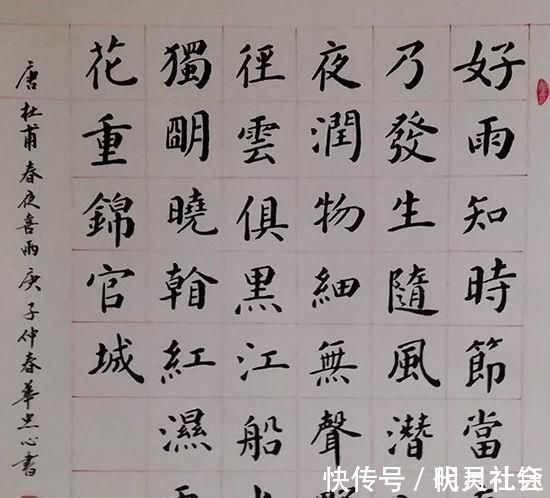 好雨知時節當
乃發生隨風潛
夜潤物細無聲
徑雲俱黑江船
獨朙曉看紅濕
花重錦官城
唐杜甫春夜喜雨庚子仲春華心書
快传号